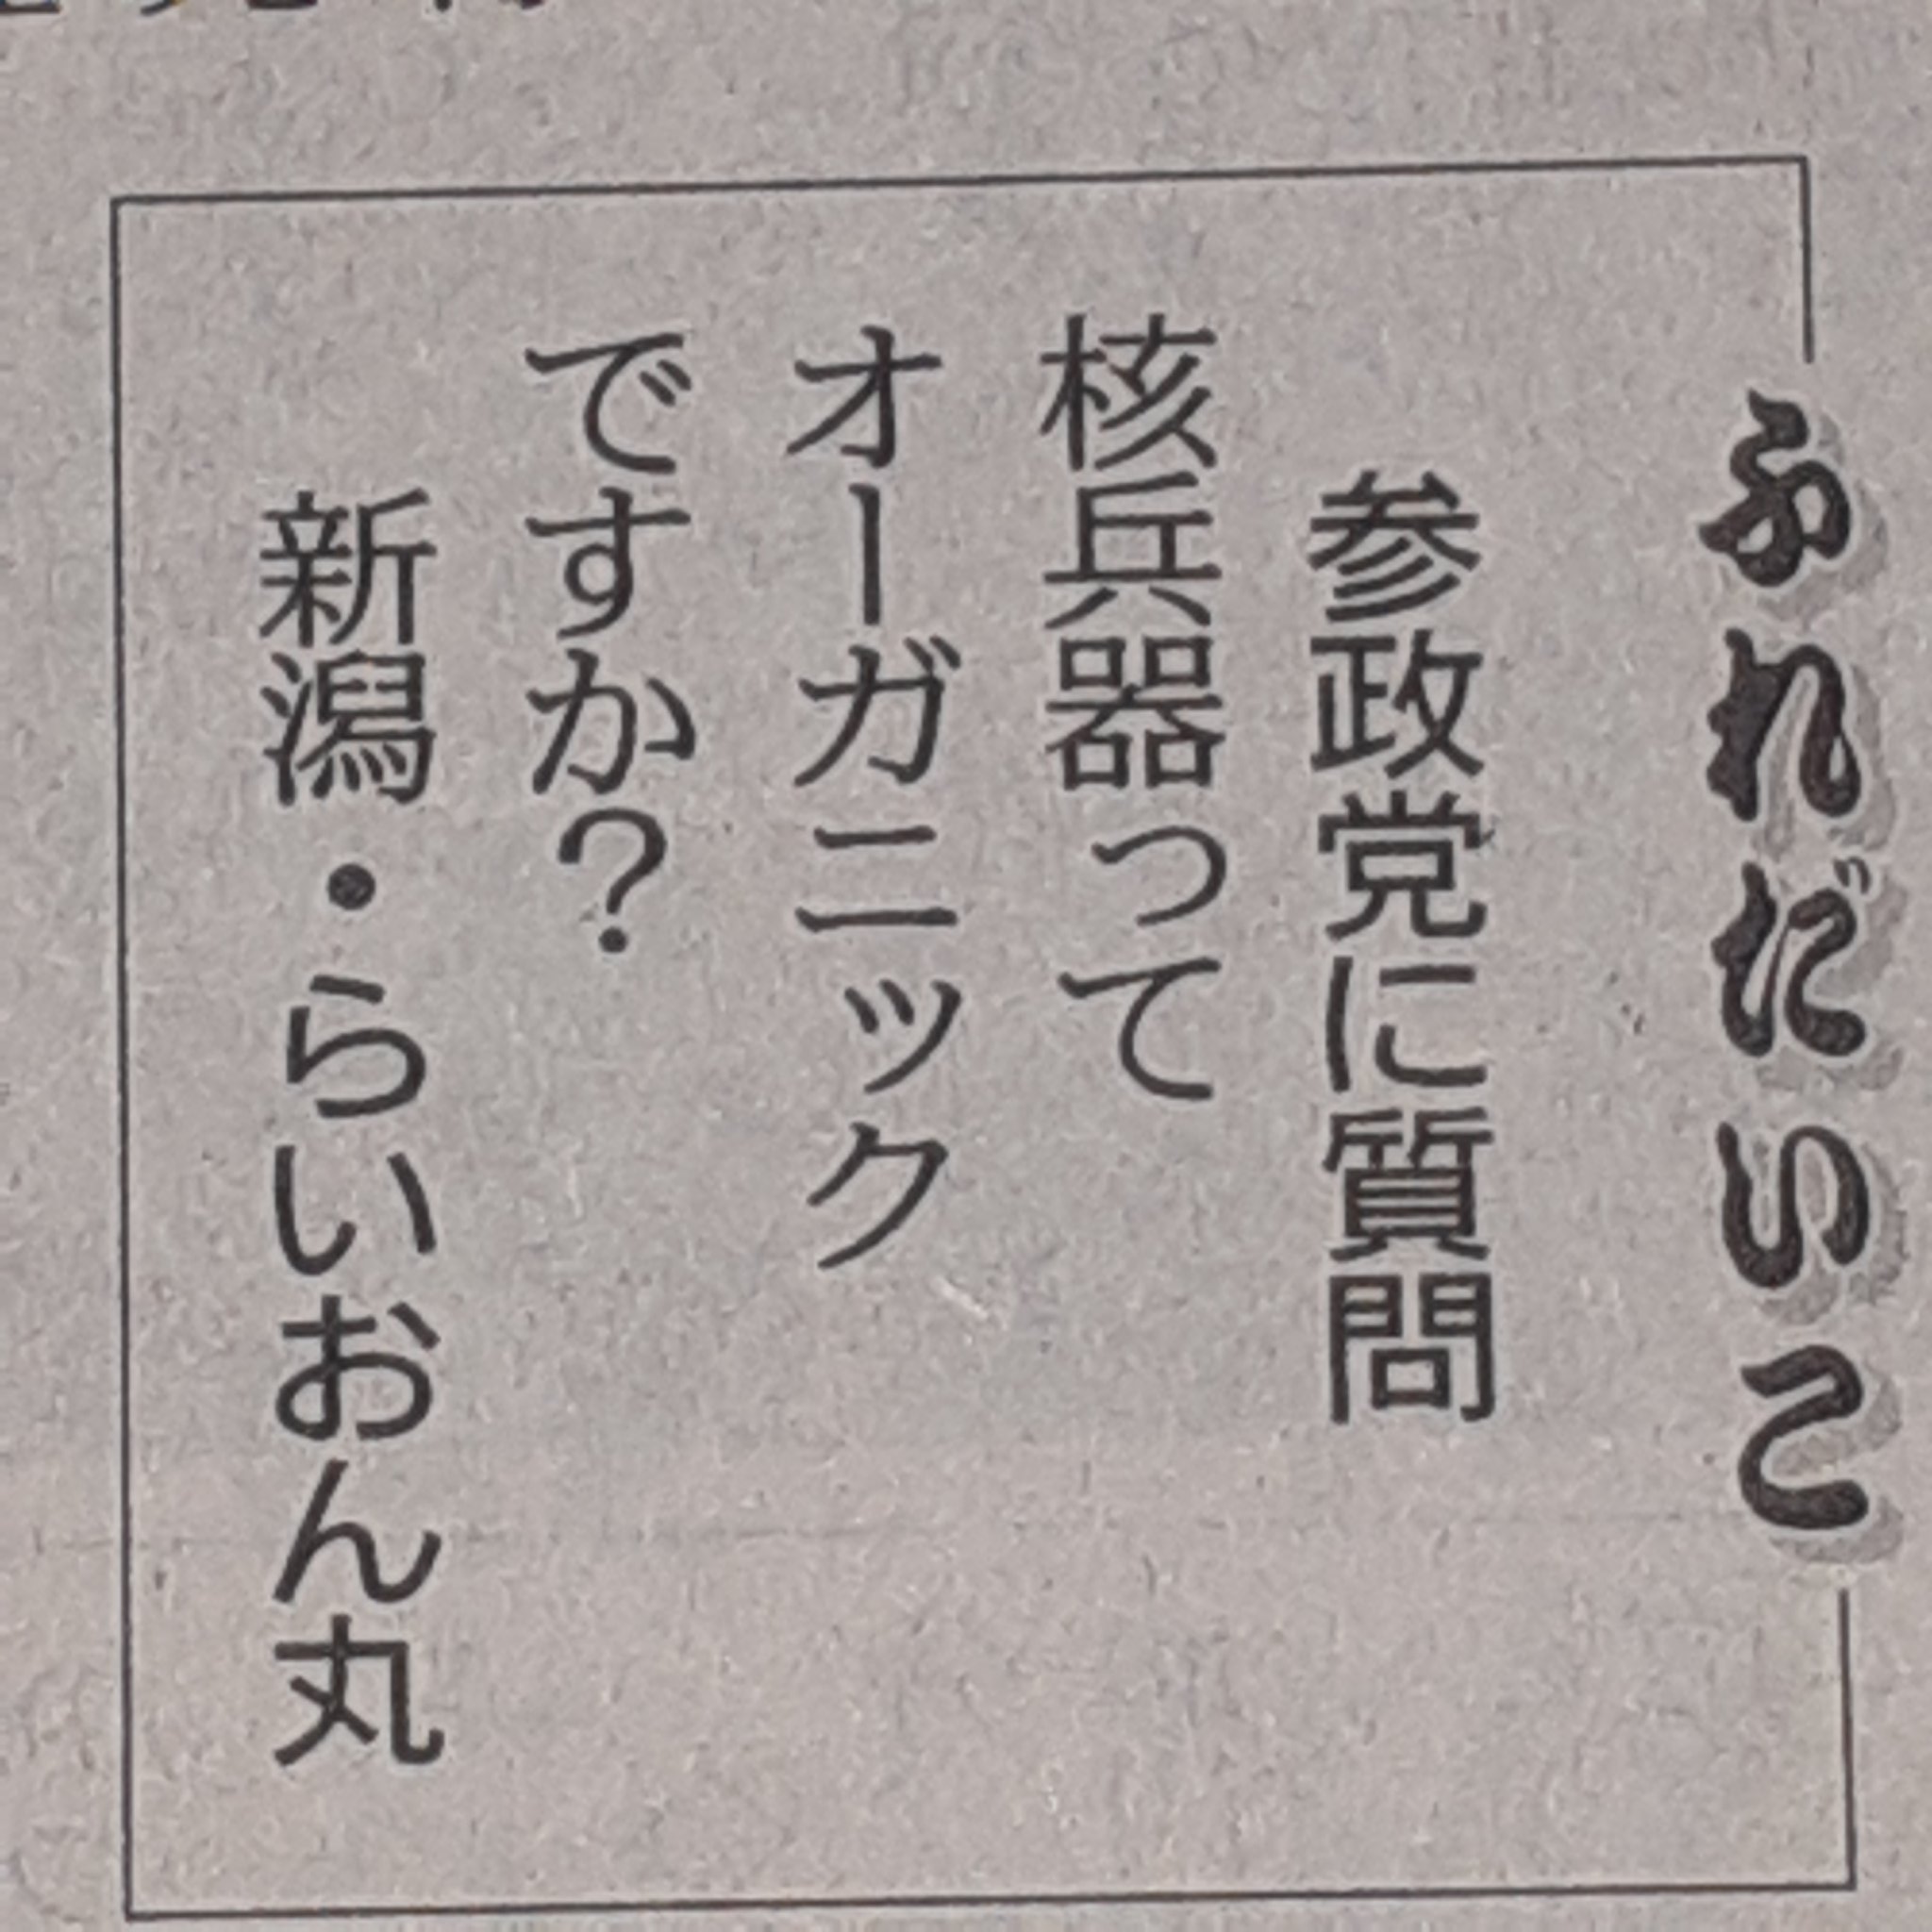 ふれだいこ
参政党に質問
核兵器って
オーガニック
ですか?
新潟・らいおん丸